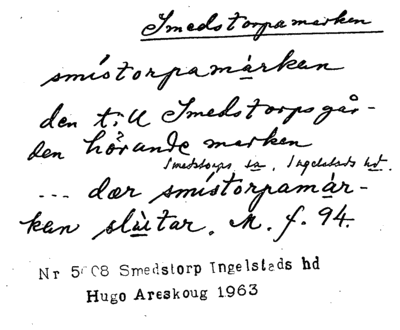 Smedstorpamarken
smistorpamàrkan
den till Smedstorpsgår-
den hörande marken
Smedstorps sn, Ingelstads hd.
... dær smistorpamàr-
kan slùtar. M. f. 94.
Nr 5 08 Smedstorp Ingelstads hd
Hugo Areskoug 1963